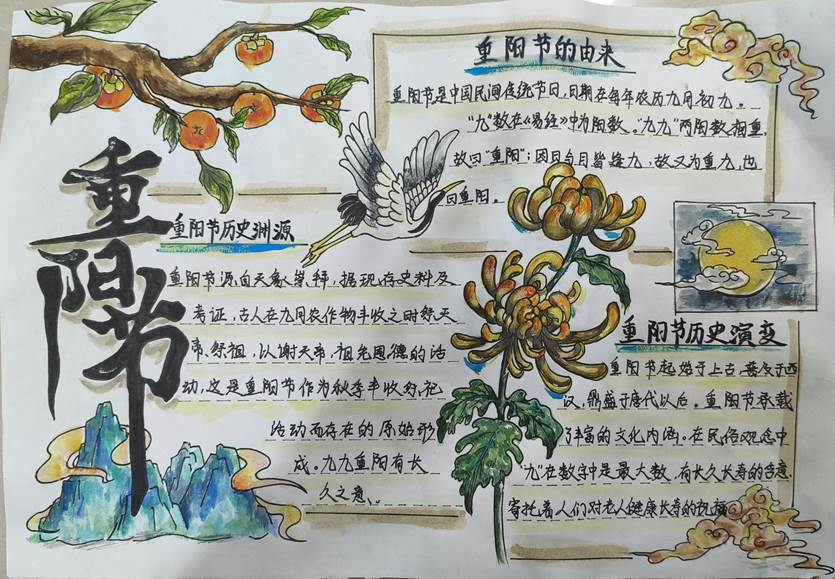 重阳节
重阳节的由来
重阳节是中国民间传统节日,日期在每年农历九月初九。
"九"数在《易经》中为阳数。"九九"两阳数相重,
故曰"重阳";因日与月皆逢九,故又为重九,也
曰重阳。
重阳节历史渊源
重阳节源自天象崇拜,据现存史料及
考证,古人在九月农作物丰收之时祭天
帝、祭祖,以谢天帝、祖先恩德的活
动,这是重阳节作为秋季丰收的祀
活动而存在的原始形
成。九九重阳有长
久之意、。
重阳节历史演变
重阳节起始于上古,普及于西
汉,鼎盛于唐代以后。重阳节承载
了丰富的文化内涵。在民俗观念中
"九"在数字中是最大数,有长久长寿的含意,
寄托着人们对老人健康长寿的祝福